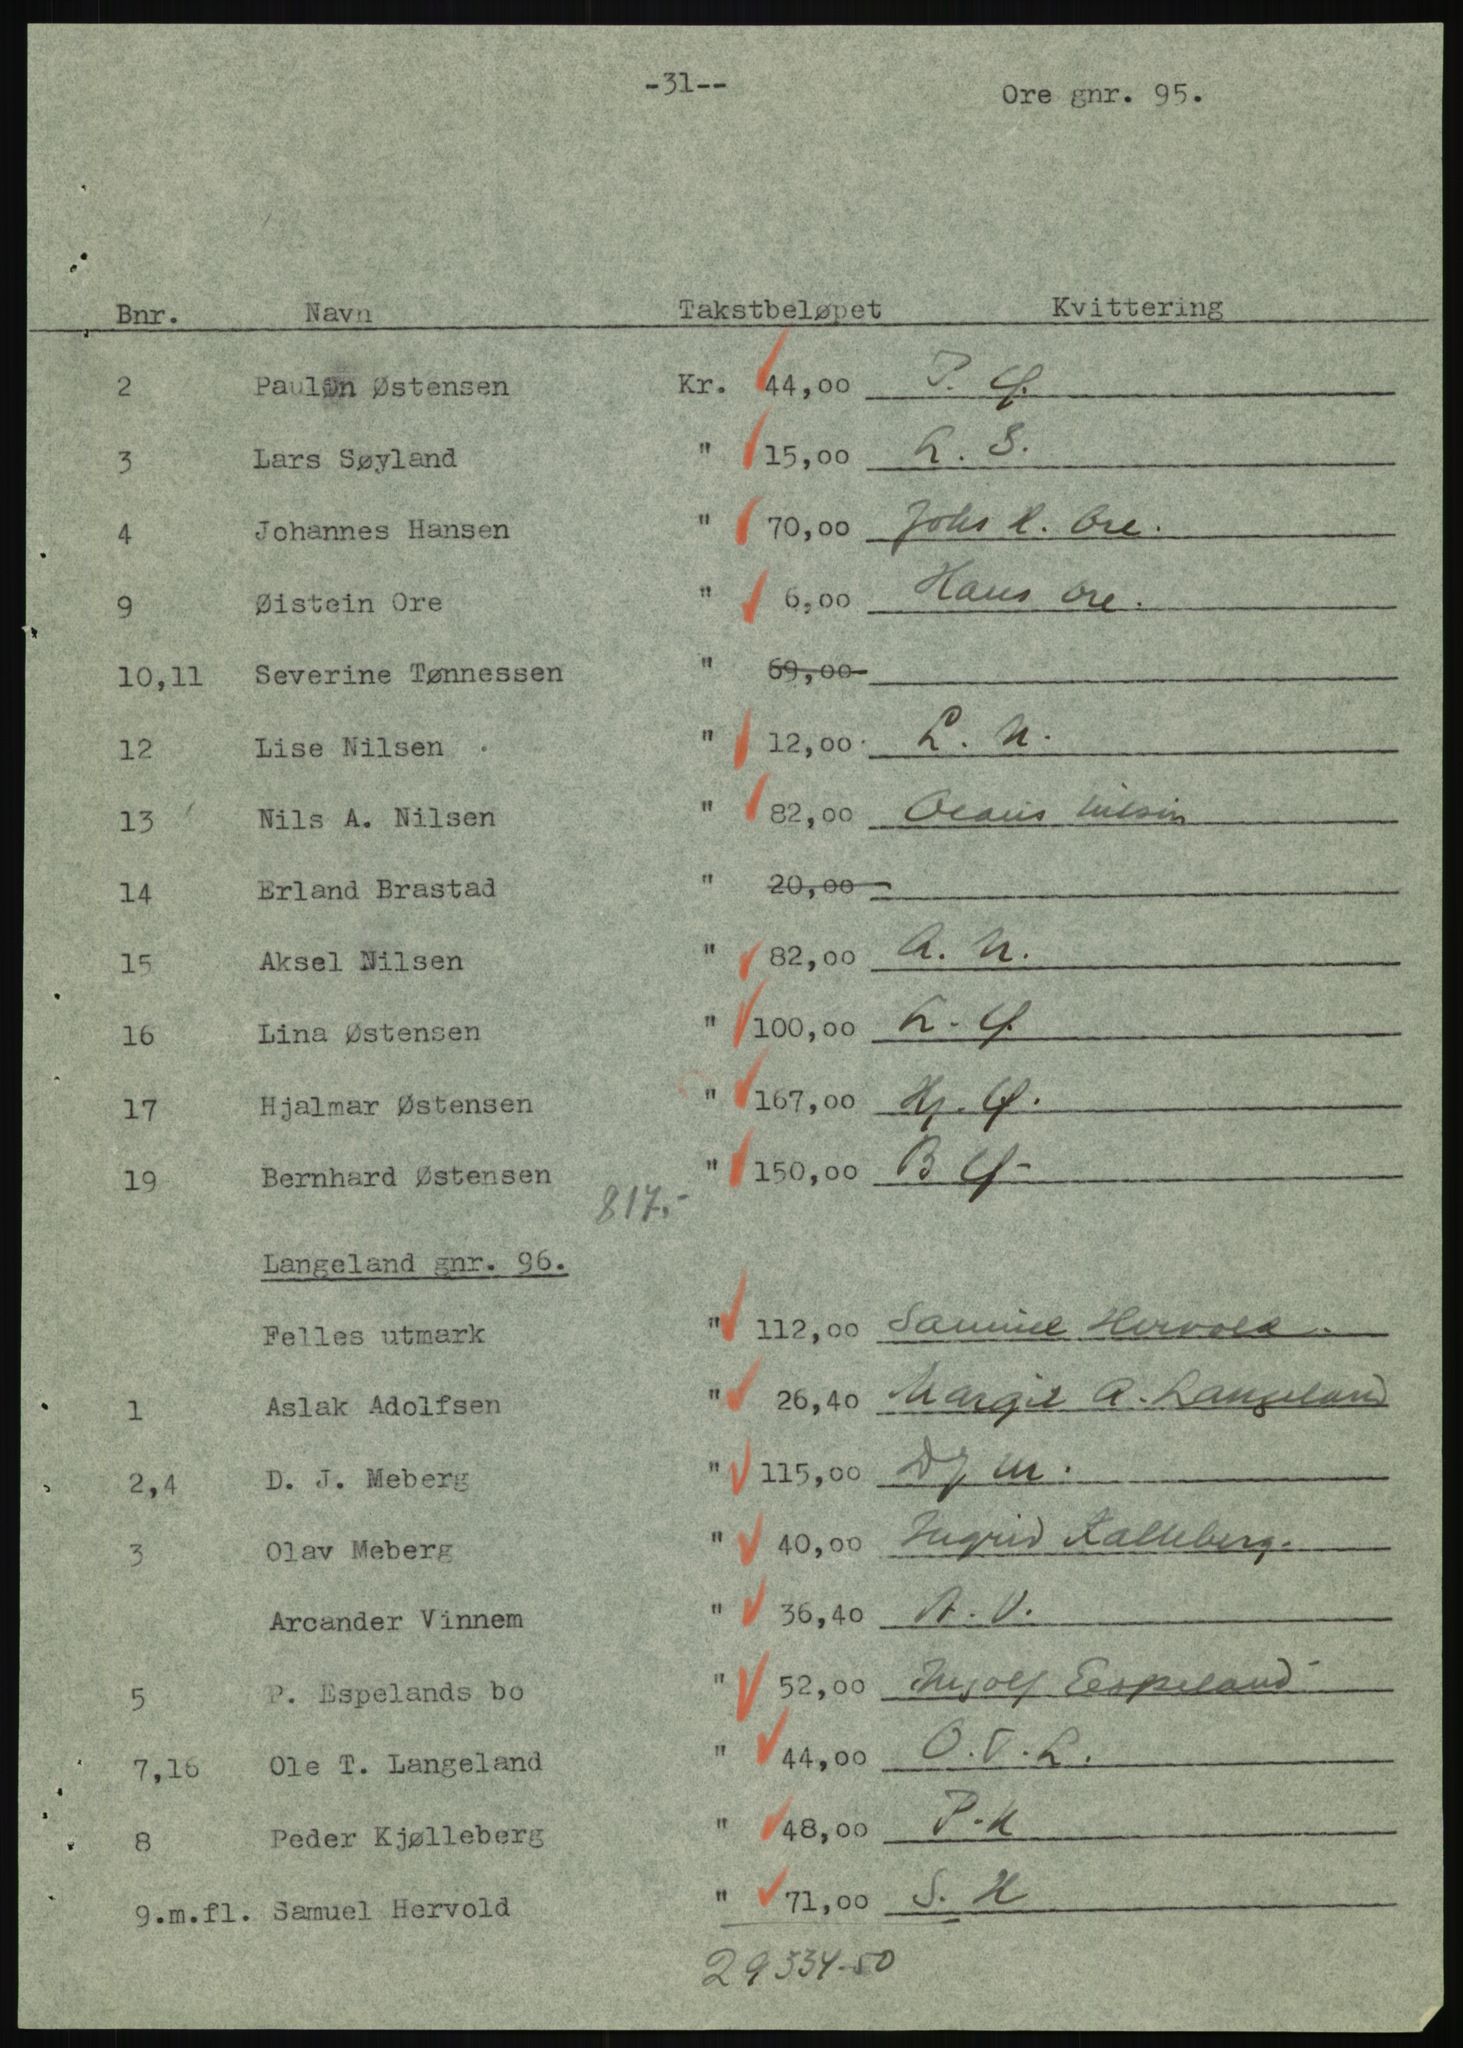 -31--
Ore gnr. 95.
Bnr. Navn Takstbeløpet Kvittering
2 Paulen Østensen Kr. 44,00 P. Ø.
3 Lars Søyland " 15,00 L. S.
4 Johannes Hansen " 70,00 Johs H. Ore.
9 Øistein Ore " 6,00 Hans Ore.
10,11 Severine Tønnessen " 69,00
12 Lise Nilsen " 12,00 L. N.
13 Nils A. Nilsen " 82,00 Nilsen
14 Erland Brastad " 20,00
15 Aksel Nilsen " 82,00 A. N.
16 Lina Østensen " 100,00 L. Ø
17 Hjalmar Østensen " 167,00 Hj. Ø.
19 Bernhard Østensen " 150,00 B Ø-
817,-
Langeland gnr. 96.
Felles utmark " 112,00 Samuel Hervold.
1 Aslak Adolfsen " 26,40 Margit A. Langeland
2,4 D. J. Meberg " 115,00 DJ M.
3 Olav Meberg " 40,00 Ingrid Kalleberg.
Arcander Vinnem " 36,40 A. V.
5 P. Espelands bo " 52,00 Ingolf Espeland
7,16 Ole T. Langeland " 44,00 O.T.L.
8 Peder Kjølleberg " 48,00 P.K
9.m.fl. Samuel Hervold " 71,00 S. H
29334-50